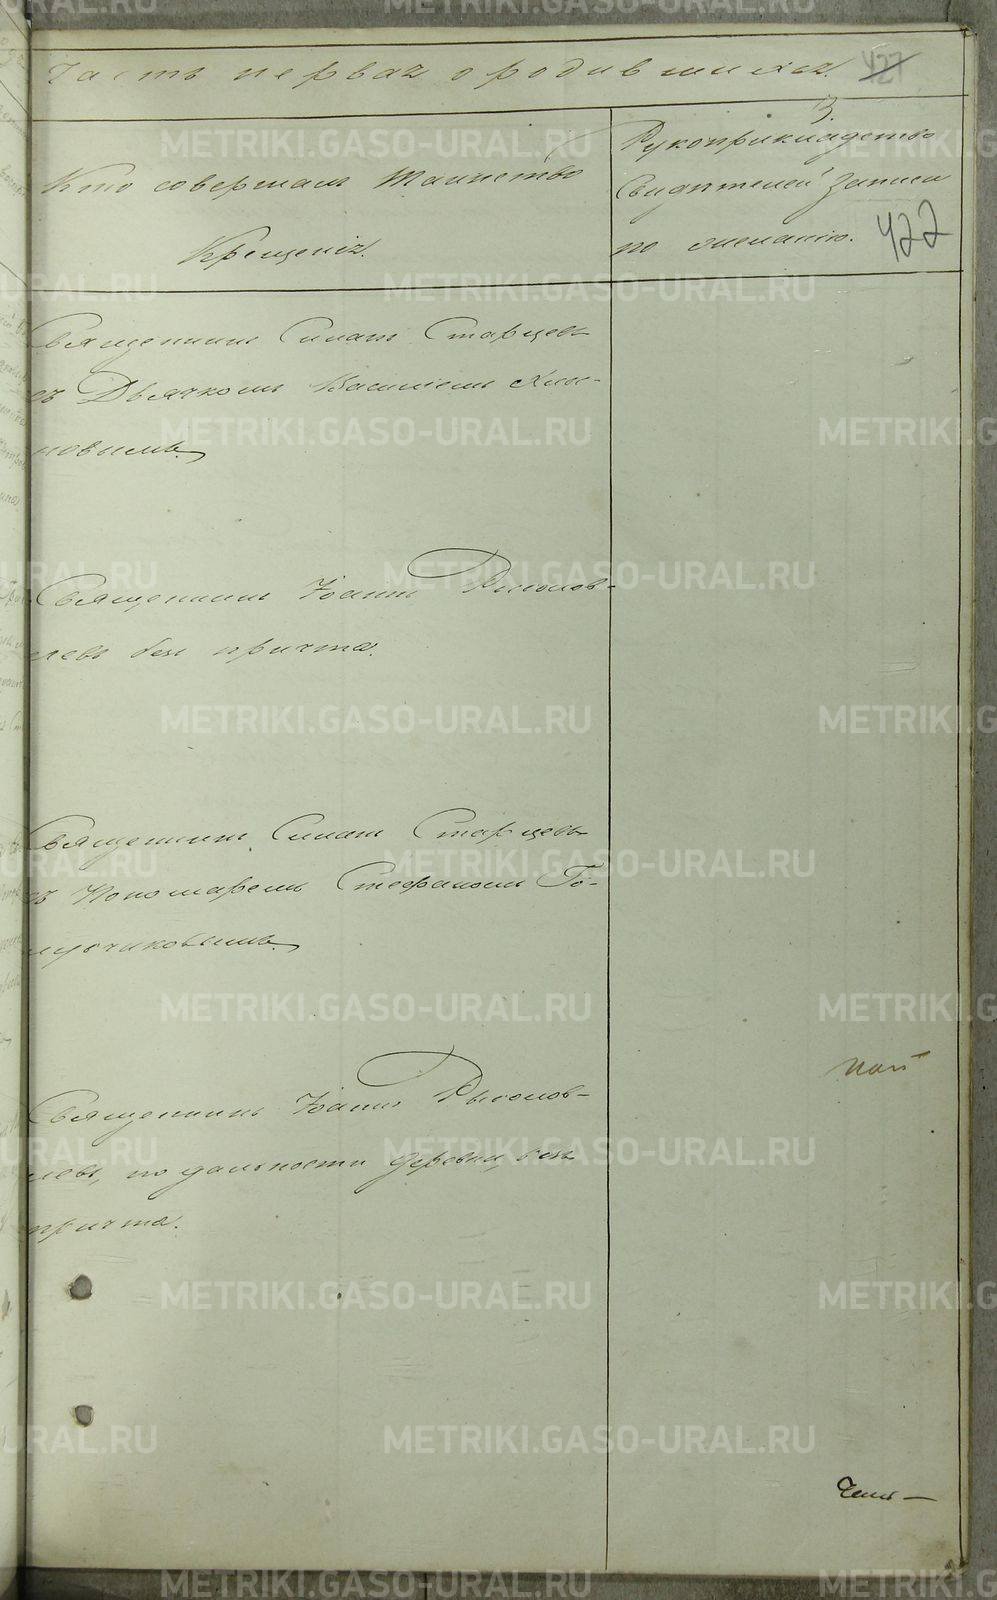 Часть первая о родившихся.
427
3.
Кто совершалъ таинство
Крещенія.
Рукоприкладство
Свидѣтелей записи
по желанію.
422
Священникъ Симонъ Старцевъ
съ Дьячкомъ Василіемъ Хлы-
новымъ.
Священникъ Іоаннъ Рыболов-
левъ безъ причта.
Священникъ Симонъ Старцевъ
съ Пономаремъ Стефаномъ Го-
лубчиковымъ.
Священникъ Іоаннъ Рыболов-
левъ, по дальности деревни, безъ
причта.
METRIKI.GASO-URAL.RU